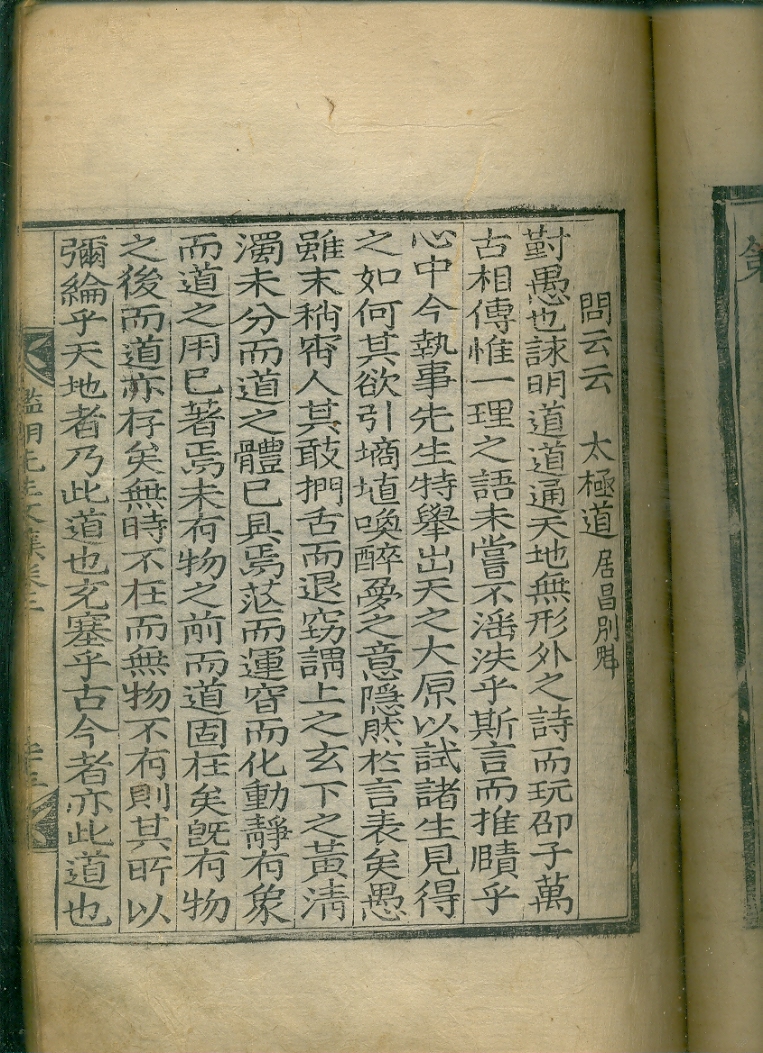 問云云 太極道 居昌別舉
對愚也詠明道道通天地無形外之詩而玩邵子萬
古相傳惟一理之語未嘗不滛泆乎斯言而推賾乎
心中今執事先生特舉出天之大原以試諸生見得
之如何其欲引擿埴喚醉夢之意隱然於言表矣愚
雖末稍窄人其敢捫舌而退窃謂上之玄下之黃淸
濁未分而道之體已具焉茫而運窅而化動靜有象
而道之用已著焉未有物之前而道固在矣旣有物
之後而道亦存矣無時不在而無物不有則其所以
彌綸乎天地者乃此道也充塞乎古今者亦此道也
先生文集卷三